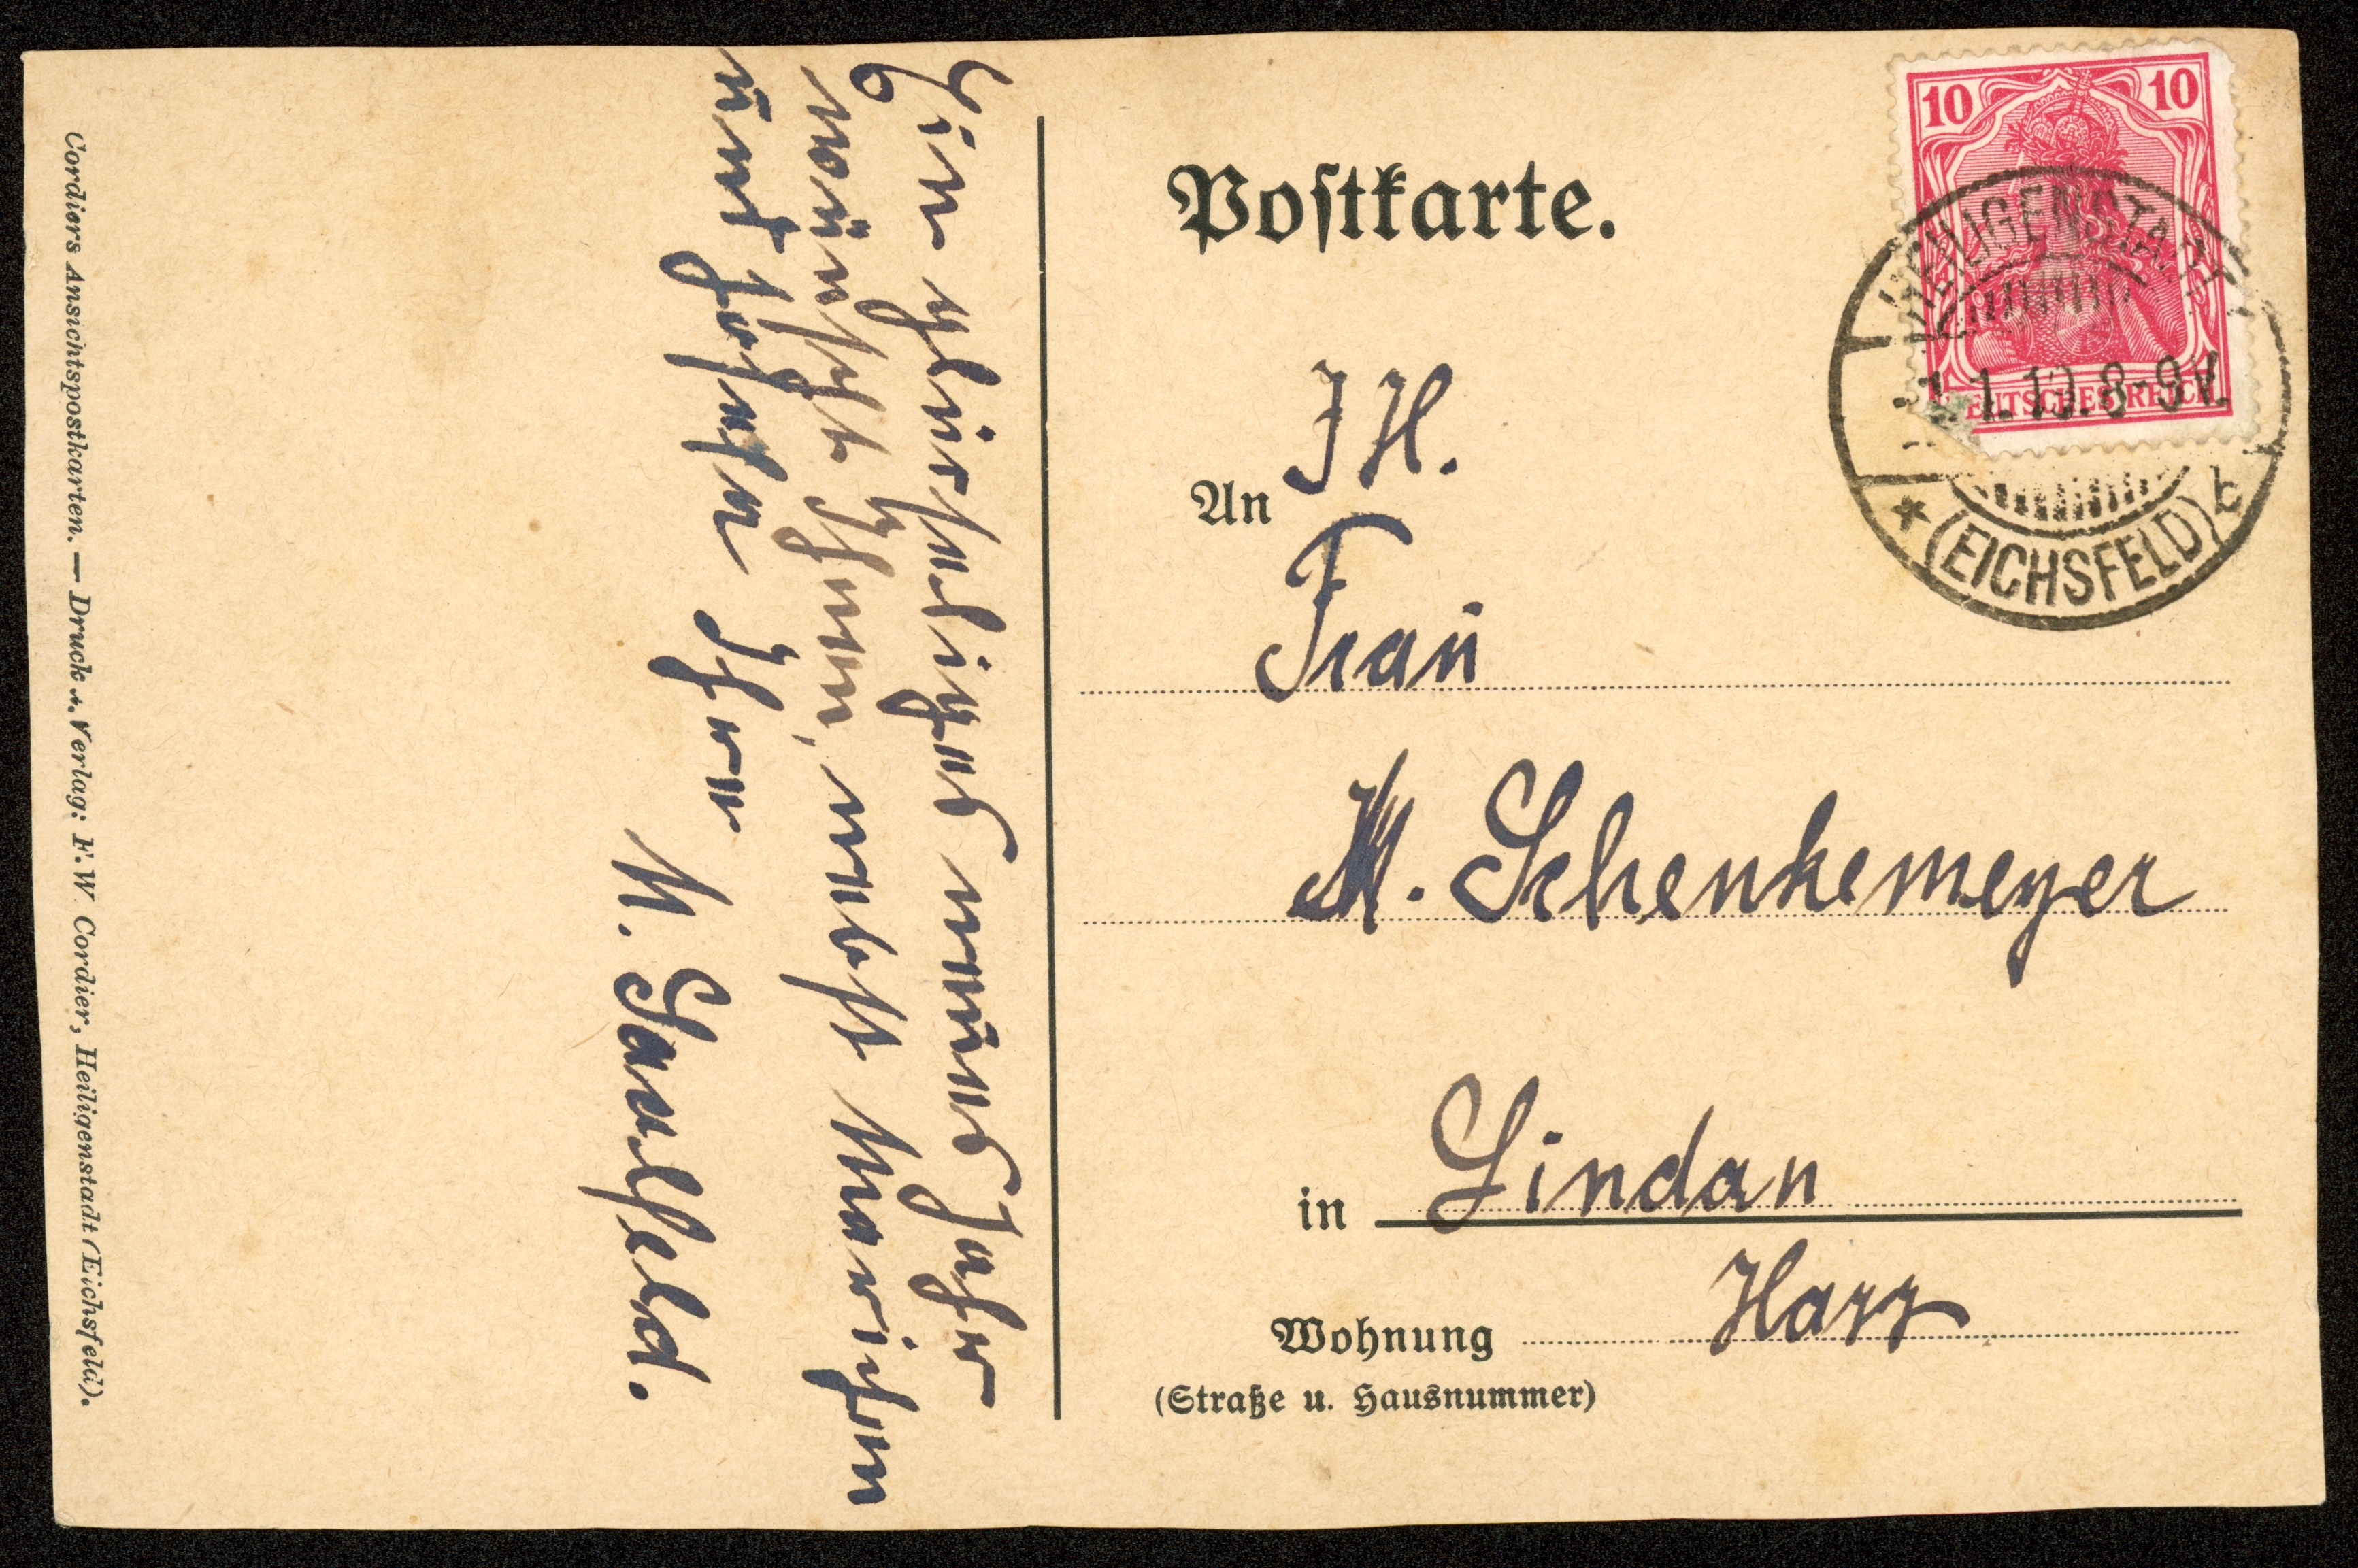 Postkarte.
10
10
DEUTSCHES REICH
HEILIGENSTADT
1.1.10.8-9V.
* (EICHSFELD) b
An
I H.
Frau
M. Schenkemeyer
in Lindau
Harz
Wohnung
(Straße u. Hausnummer)
Ein glückseliges neues Jahr
wünscht Ihnen, nebst Mariechen
und
Ihre
M. Saalfeld.
Cordiers Ansichtspostkarten. — Druck u. Verlag: F. W. Cordier, Heiligenstadt (Eichsfeld).